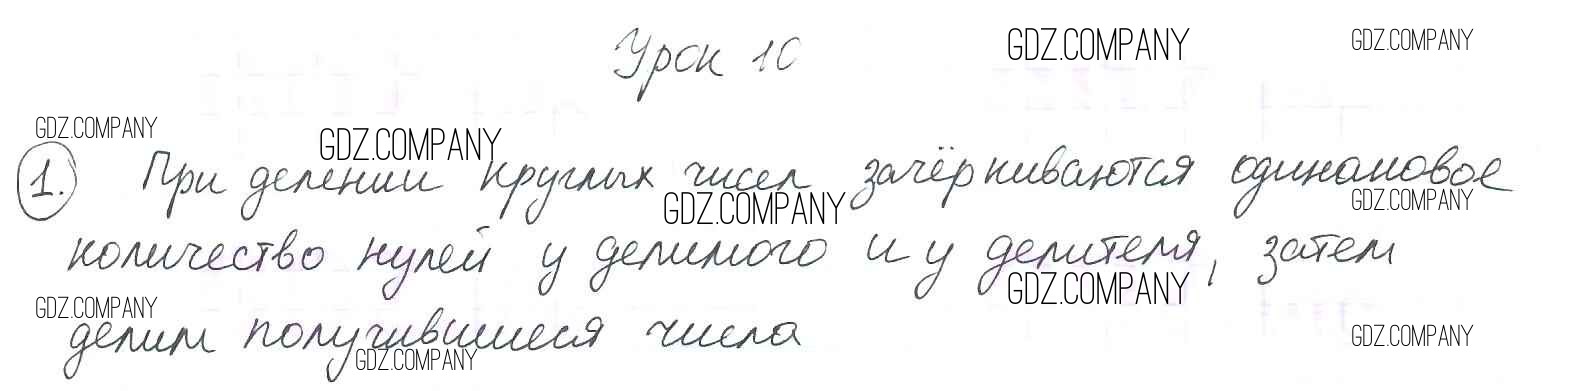 Урок 10
GDZ.COMPANY
GDZ.COMPANY
GDZ.COMPANY
GDZ.COMPANY
1. При делении круглых чисел зачёркиваются одинаковое
GDZ.COMPANY
GDZ.COMPANY
количество нулей у делимого и у делителя, затем
GDZ.COMPANY
GDZ.COMPANY
делим получившиеся числа
GDZ.COMPANY
GDZ.COMPANY